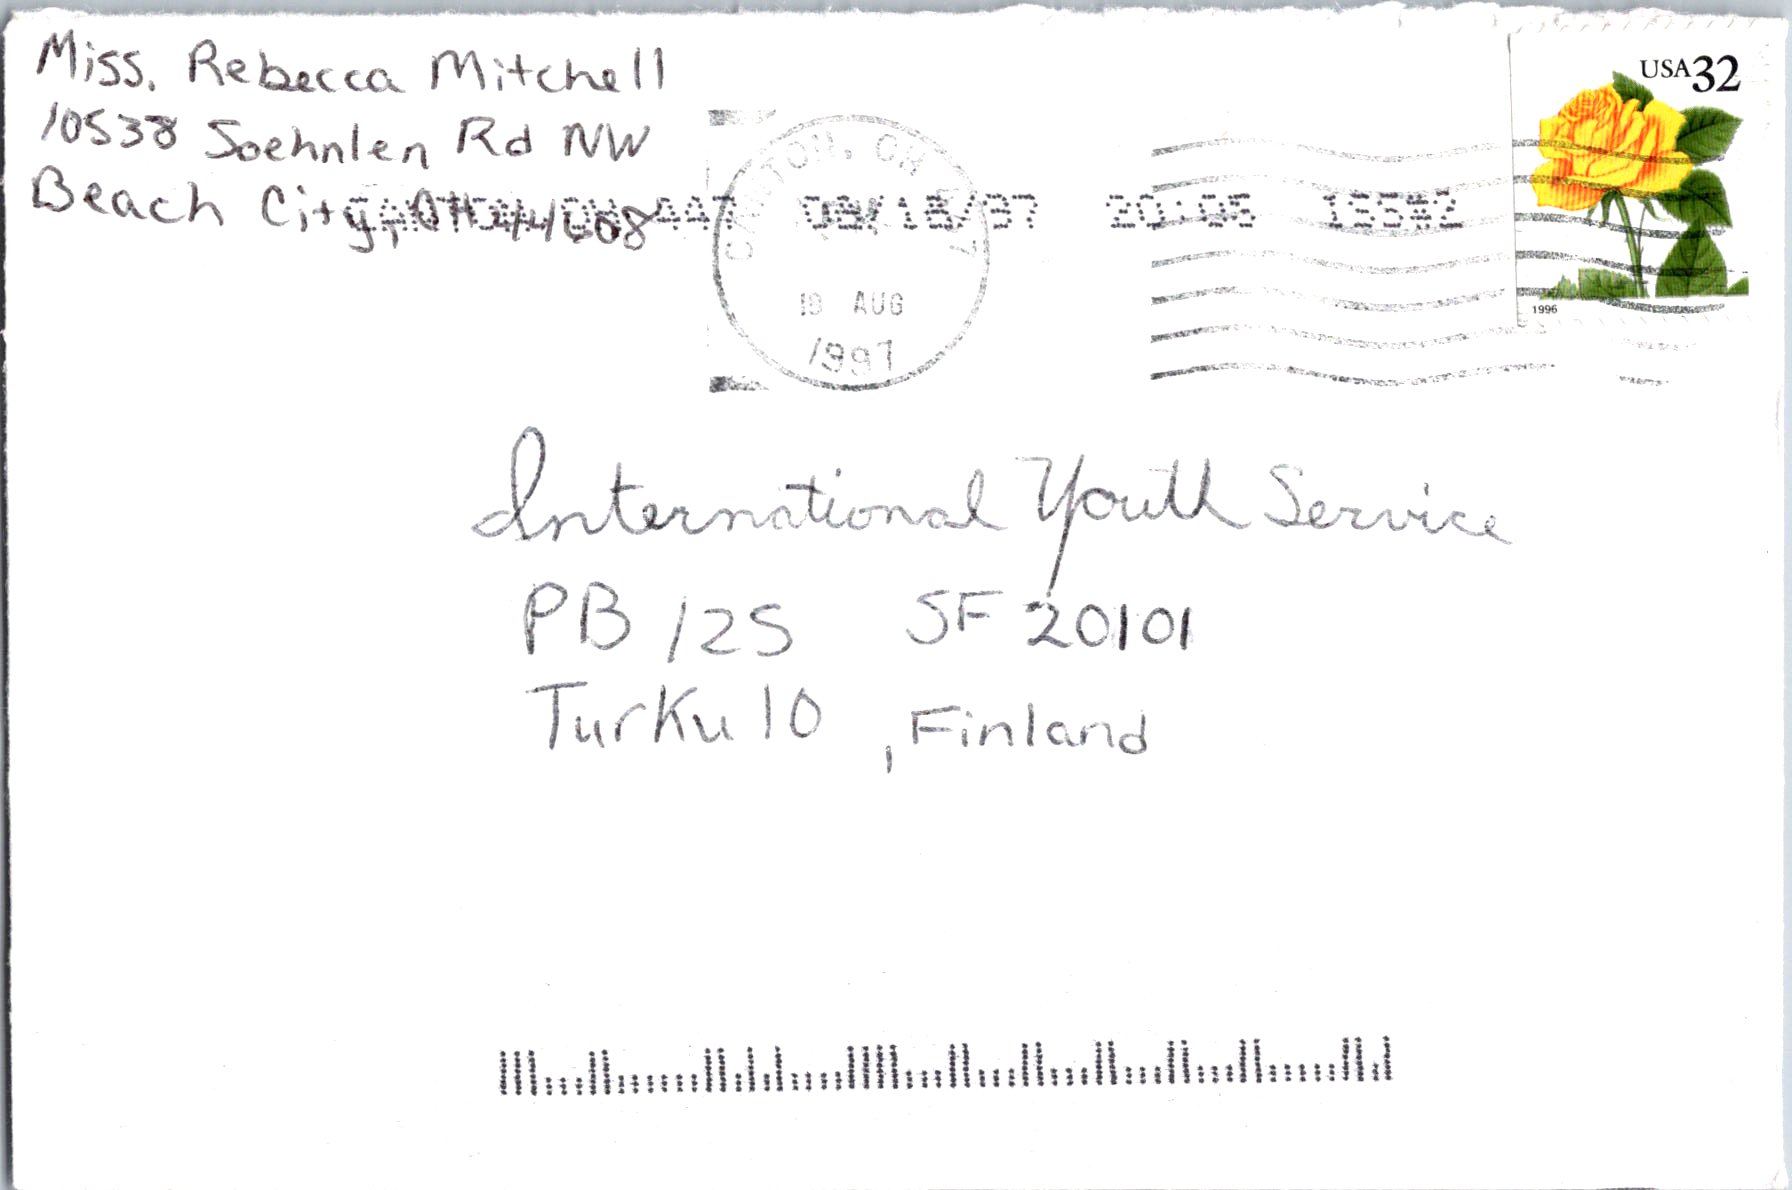 Miss. Rebecca Mitchell
10538 Soehnlen Rd NW
Beach City, OH 44608
USA 32
1996
CANTON, OH 447
18 AUG
1997
CANTON, OH 447 08/18/97 20:05 155#2
International Youth Service
PB 125 SF 20101
Turku 10 , Finland